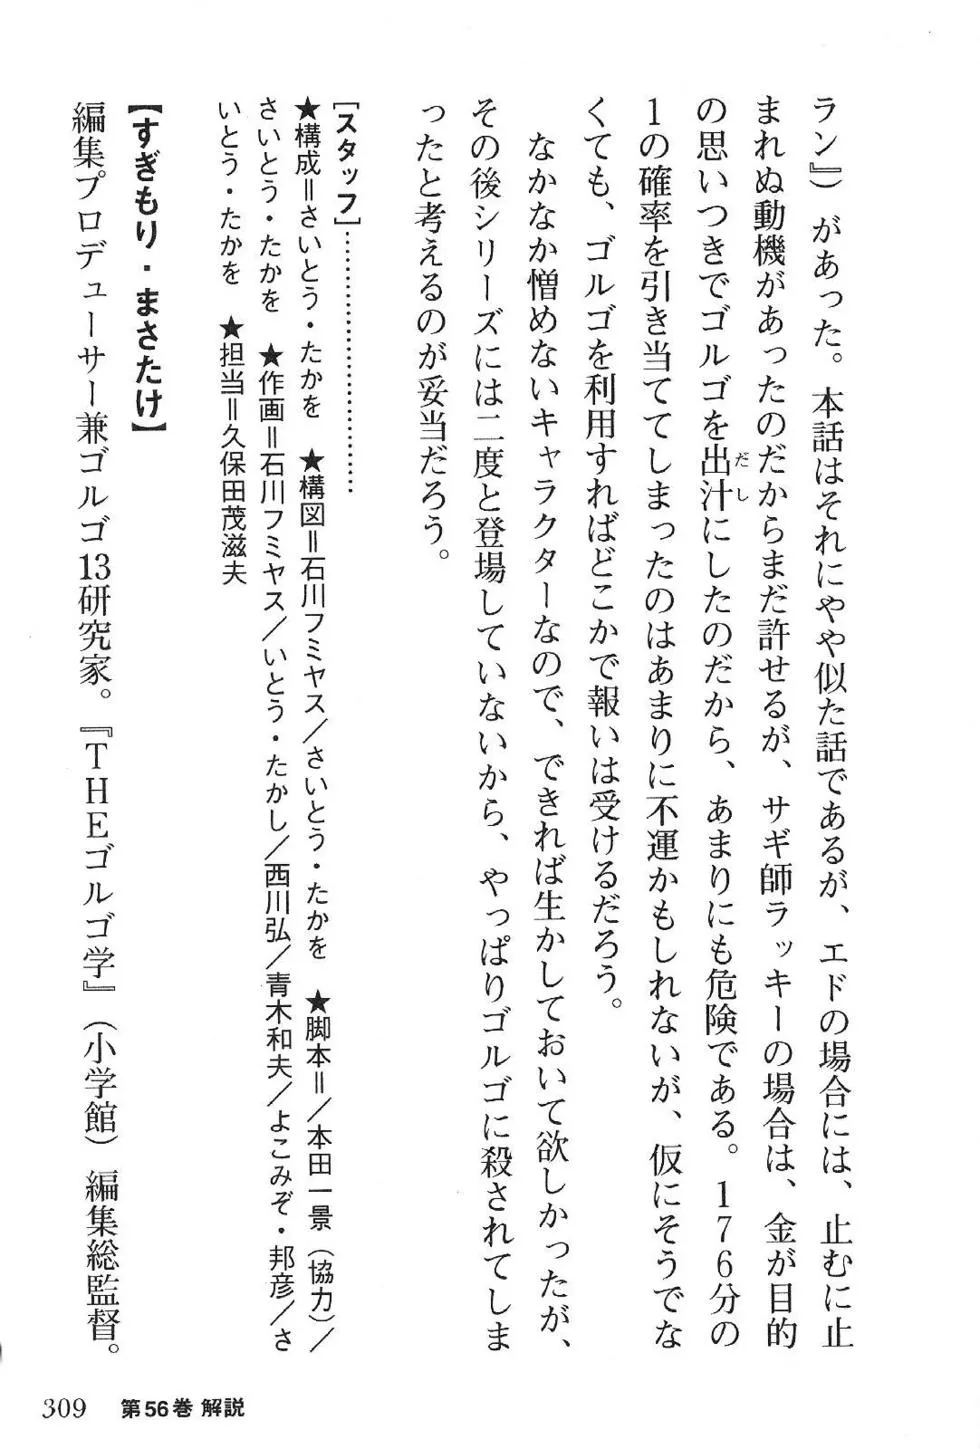 ラン』）があった。本話はそれにやや似た話であるが、エドの場合には、止むに止
まれぬ動機があったのだからまだ許せるが、サギ師ラッキーの場合は、金が目的
の思いつきでゴルゴを出汁にしたのだから、あまりにも危険である。176分の
だし
1の確率を引き当ててしまったのはあまりに不運かもしれないが、仮にそうでな
くても、ゴルゴを利用すればどこかで報いは受けるだろう。
なかなか憎めないキャラクターなので、できれば生かしておいて欲しかったが、
その後シリーズには二度と登場していないから、やっぱりゴルゴに殺されてしま
ったと考えるのが妥当だろう。
［スタッフ］……………………………
★構成＝さいとう・たかを　★構図＝石川フミヤス／さいとう・たかを　★脚本＝／本田一景（協力）／
さいとう・たかを　★作画＝石川フミヤス／いとう・たかし／西川弘／青木和夫／よこみぞ・邦彦／さ
いとう・たかを　★担当＝久保田茂滋夫
【すぎもり・まさたけ】
編集プロデューサー兼ゴルゴ13研究家。『THEゴルゴ学』（小学館）編集総監督。
309　第56巻 解説